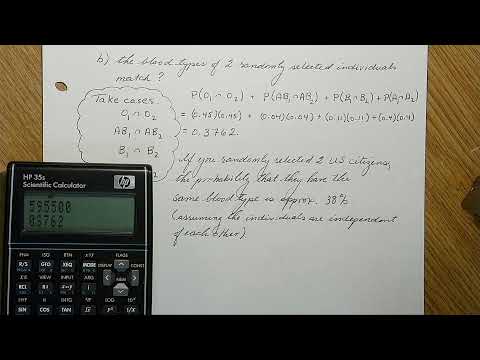 b) the blood types of 2 randomly selected individuals
match?
Take cases.
O₁ ∩ O₂
AB₁ ∩ AB₂
B₁ ∩ B₂
2
P(O₁∩O₂) + P(AB₁∩AB₂) + P(B₁∩B₂) + P(A₁∩A₂)
= (0.45)(0.45) + (0.04)(0.04) + (0.11)(0.11) + (0.4)(0.4)
= 0.3762
If you randomly selected 2 US citizens,
the probability that they have the
same blood type is approx. 38%
(assuming the individuals are independent
of each other)
HP 35s
Scientific Calculator
hp
R/S GTO XEQ MODE
RCL
SIN COS TAN √x yˣ 1/x